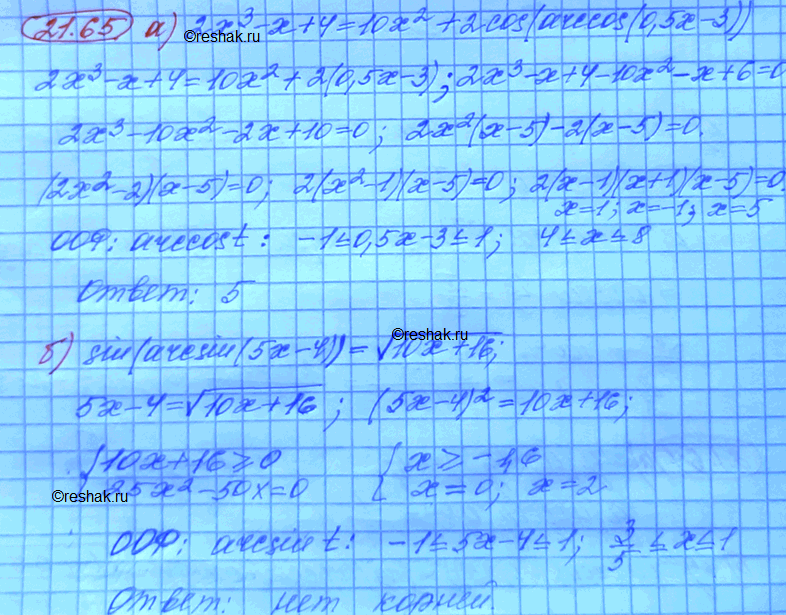 21.65 а) 2x³-x+4=10x²+2cos(arccos(0,5x-3))
©reshak.ru
2x³-x+4=10x²+2(0,5x-3); 2x³-x+4-10x²-x+6=0
2x³-10x²-2x+10=0; 2x²(x-5)-2(x-5)=0.
(2x²-2)(x-5)=0; 2(x²-1)(x-5)=0; 2(x-1)(x+1)(x-5)=0
x=1; x=-1; x=5
ООФ: arccos t: -1≤0,5x-3≤1; 4≤x≤8
Ответ: 5
©reshak.ru
б) sin(arcsin(5x-4))=√10x+16;
5x-4=√10x+16; (5x-4)²=10x+16;
{10x+16≥0 {x≥-1,6
©reshak.ru
25x²-50x=0 x=0; x=2
ООФ: arcsin t: -1≤5x-4≤1; 3/5≤x≤1
Ответ: нет корней.